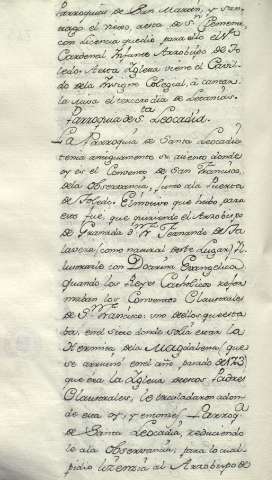 Parroquias de San Martin, y San-
tiago el nuevo, acerca de Sn. Geronimo
con licencia que dio para ello el Sr.
Cardenal Infante Arzobispo de To-
ledo. A esta Iglesia viene el Cavil-
do de la Insigne Colegial, à cantar
la Missa el tercero dia de Letanías.
Parroquia de Sta. Leocadia.
La Parroquia de Santa Leocadia
tenia antiguamente su asiento donde
oy es el Convento de San Francisco,
de la Observancia, junto a la Puerta
de Toledo. El motivo que hubo, para
esto fue, que queriendo el Arzobispo
de Granada Dn. Fr. Fernando de Ta-
lavera (como natural deste Lugar)
Ilustrarlo con Doctrina Evangelica
quando los Reyes Catholicos refor-
maban los Conventos Claustrales
de Sn. Francisco, uno dellos que esta-
ba, en el sitio donde solía estar la
Hermita de la Magdalena (que
se arruinó en el año pasado de 1723)
que era la Iglesia de otros Padres
Claustrales, le trasladaron adon-
de esta oy, y entonces Parroqa.
de Santa Leocadia, reduciendo
lo a la Observancia, para lo cual
pidio licencia al Arzobispo de